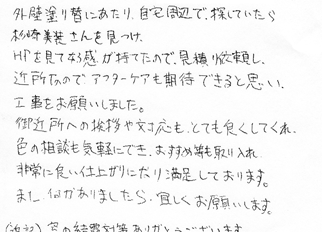 外壁塗り替にあたり、自宅周辺で、探していたら
杉崎美装さんを見つけ、
HPを見てなる感が持てたので、見積り依頼し、
近所なので アフターケアも期待できると思い、
工事をお願いしました。
御近所への挨拶や対応も、とても良くしてくれ、
色の相談も気軽にでき、おすすめ等も取り入れ
非常に良い仕上がりになり満足しております。
また、何かありましたら、宜しくお願いします。